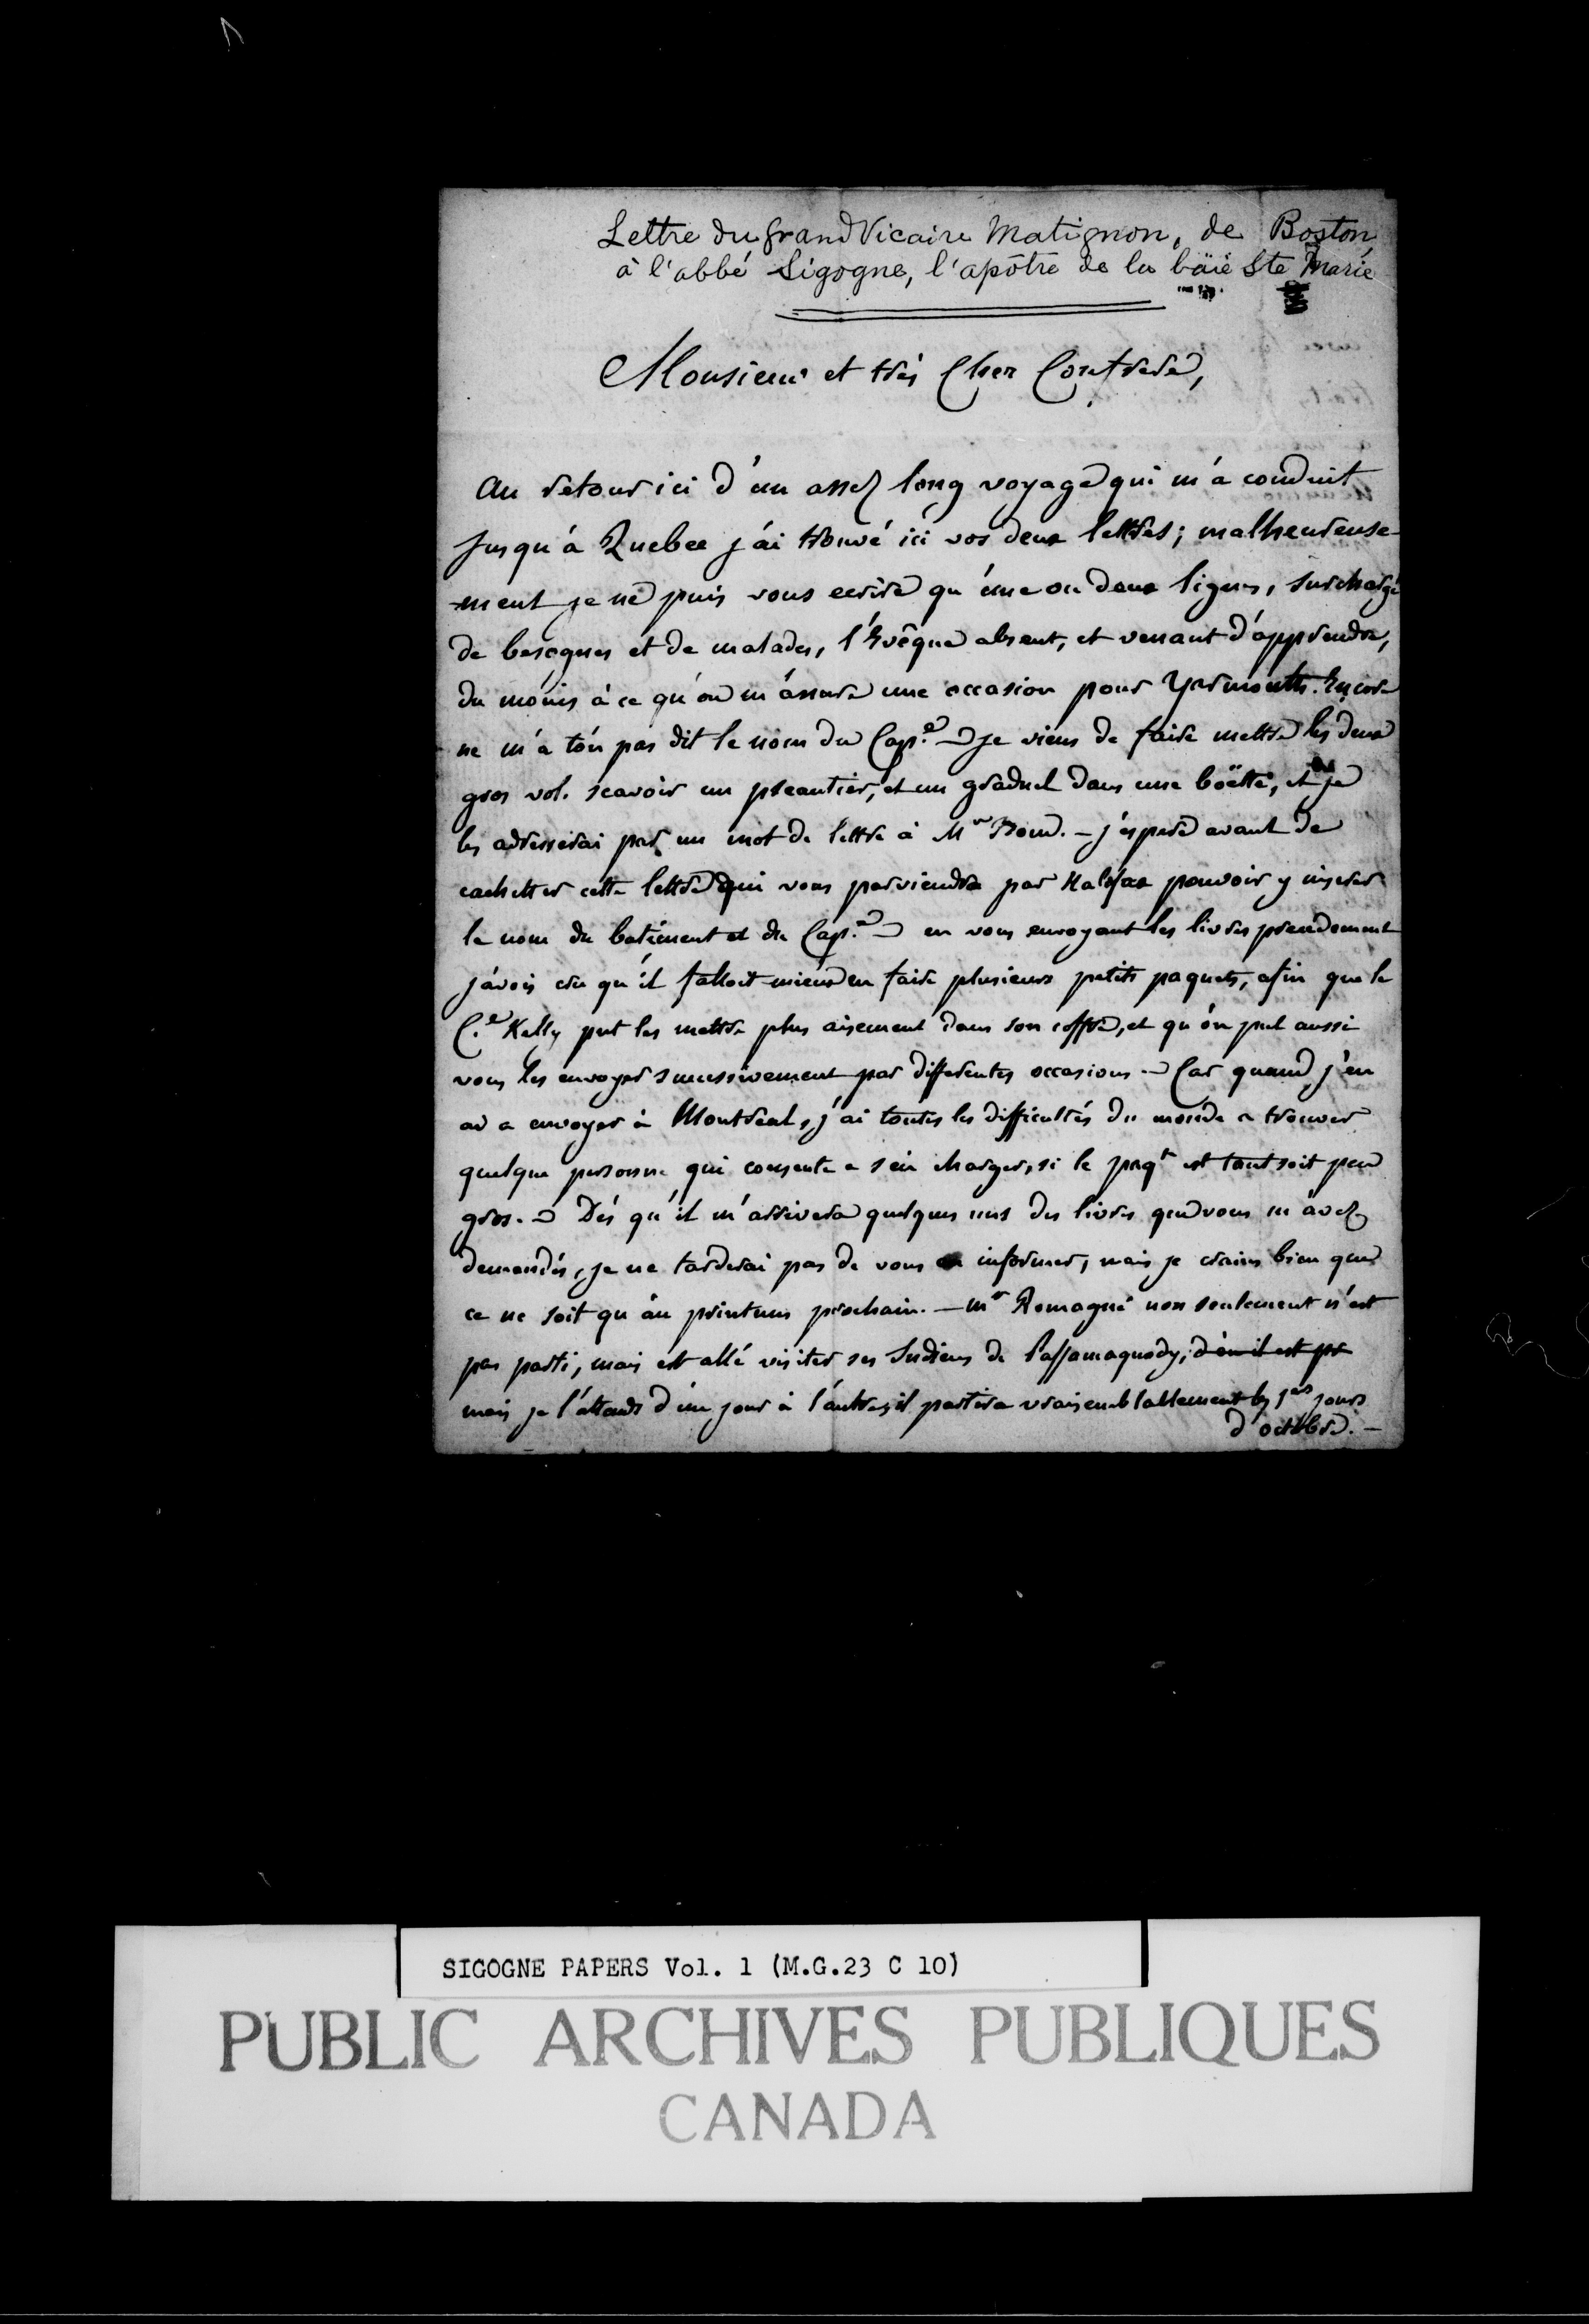 Lettre du grand Vicaire Matignon, de Boston
à l'abbé Sigogne, l'apôtre de la baïe Ste Marie
Monsieur et très Cher Confrere,
Au retour ici d'un assez long voyage qui m'a conduit
jusqu'à Quebec j'ai trouvé ici vos deux lettres; malheureuse-
-ment je ne puis vous ecrire qu'une ou deux lignes, surchargé
de besognes et de malades, l'Evêque absent, et venant d'apprendre,
du moins à ce qu'on m'assure une occasion pour Yarmouth. Encore
ne m'a t'on pas dit le nom du Cap.e – je viens de faire mettre les deux
gros vol. scavoir un pseautier, et un graduel dans une boëtte, et je
les adresserai par un mot de lettre à Mr Bond. – j'espere avant de
cachetter cette lettre qui vous parviendra par Halifax pouvoir y inserer
le nom du batiment et du Cap.e – en vous envoyant les livres precedemment
j'avois cru qu'il falloit mieux en faire plusieurs petits paquets, afin que le
C.e Kelly put les mettre plus aisement dans son coffre, et qu'on put aussi
vous les envoyer successivement par differentes occasions – Car quand j'en
ai a envoyer à Montreal, j'ai toutes les difficultés du monde a trouver
quelque personne qui consente a s'en charger, si le paqt est tant soit peu
gros. – Dès qu'il m'arrivera quelques uns des livres que vous m'avez
demandés, je ne tarderai pas de vous en informer, mais je crains bien que
ce ne soit qu'au printems prochain. – Mr Romagné non seulement n'est
pas parti, mais est allé visiter ses Indiens de Passamaquody, d'ou il est pr
mais je l'attends d'un jour à l'autre, il partira vraisemblablement les 1ers jours
d'octobre. –
SIGOGNE PAPERS Vol. 1 (M.G.23 C 10)
PUBLIC ARCHIVES PUBLIQUES
CANADA